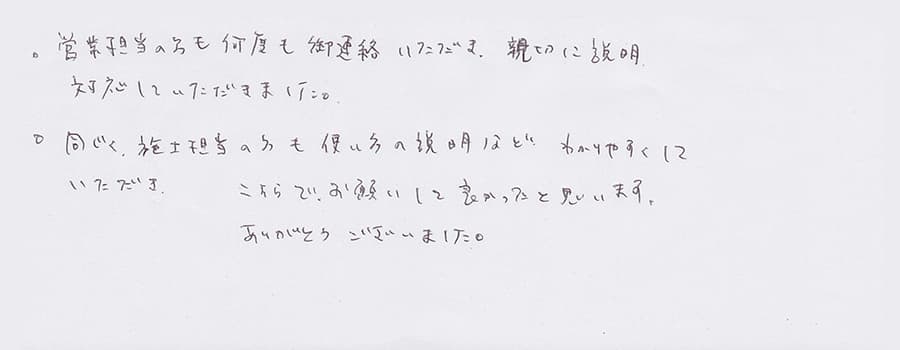 。営業担当の方も何度も御連絡いただき、親切に説明
対応していただきました。
○同じく、施工担当の方も使い方の説明など わかりやすくして
いただき、 こちらで、お願いして良かったと思います。
ありがとうございました。